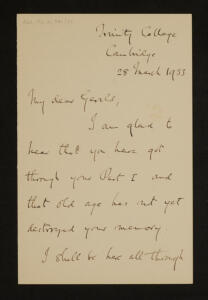 Trinity College
Cambridge
28 March 1933
My dear
I am glad to
hear that you have got
through your Part I and
that old age has not yet
destroyed your memory.
I shall be here all through